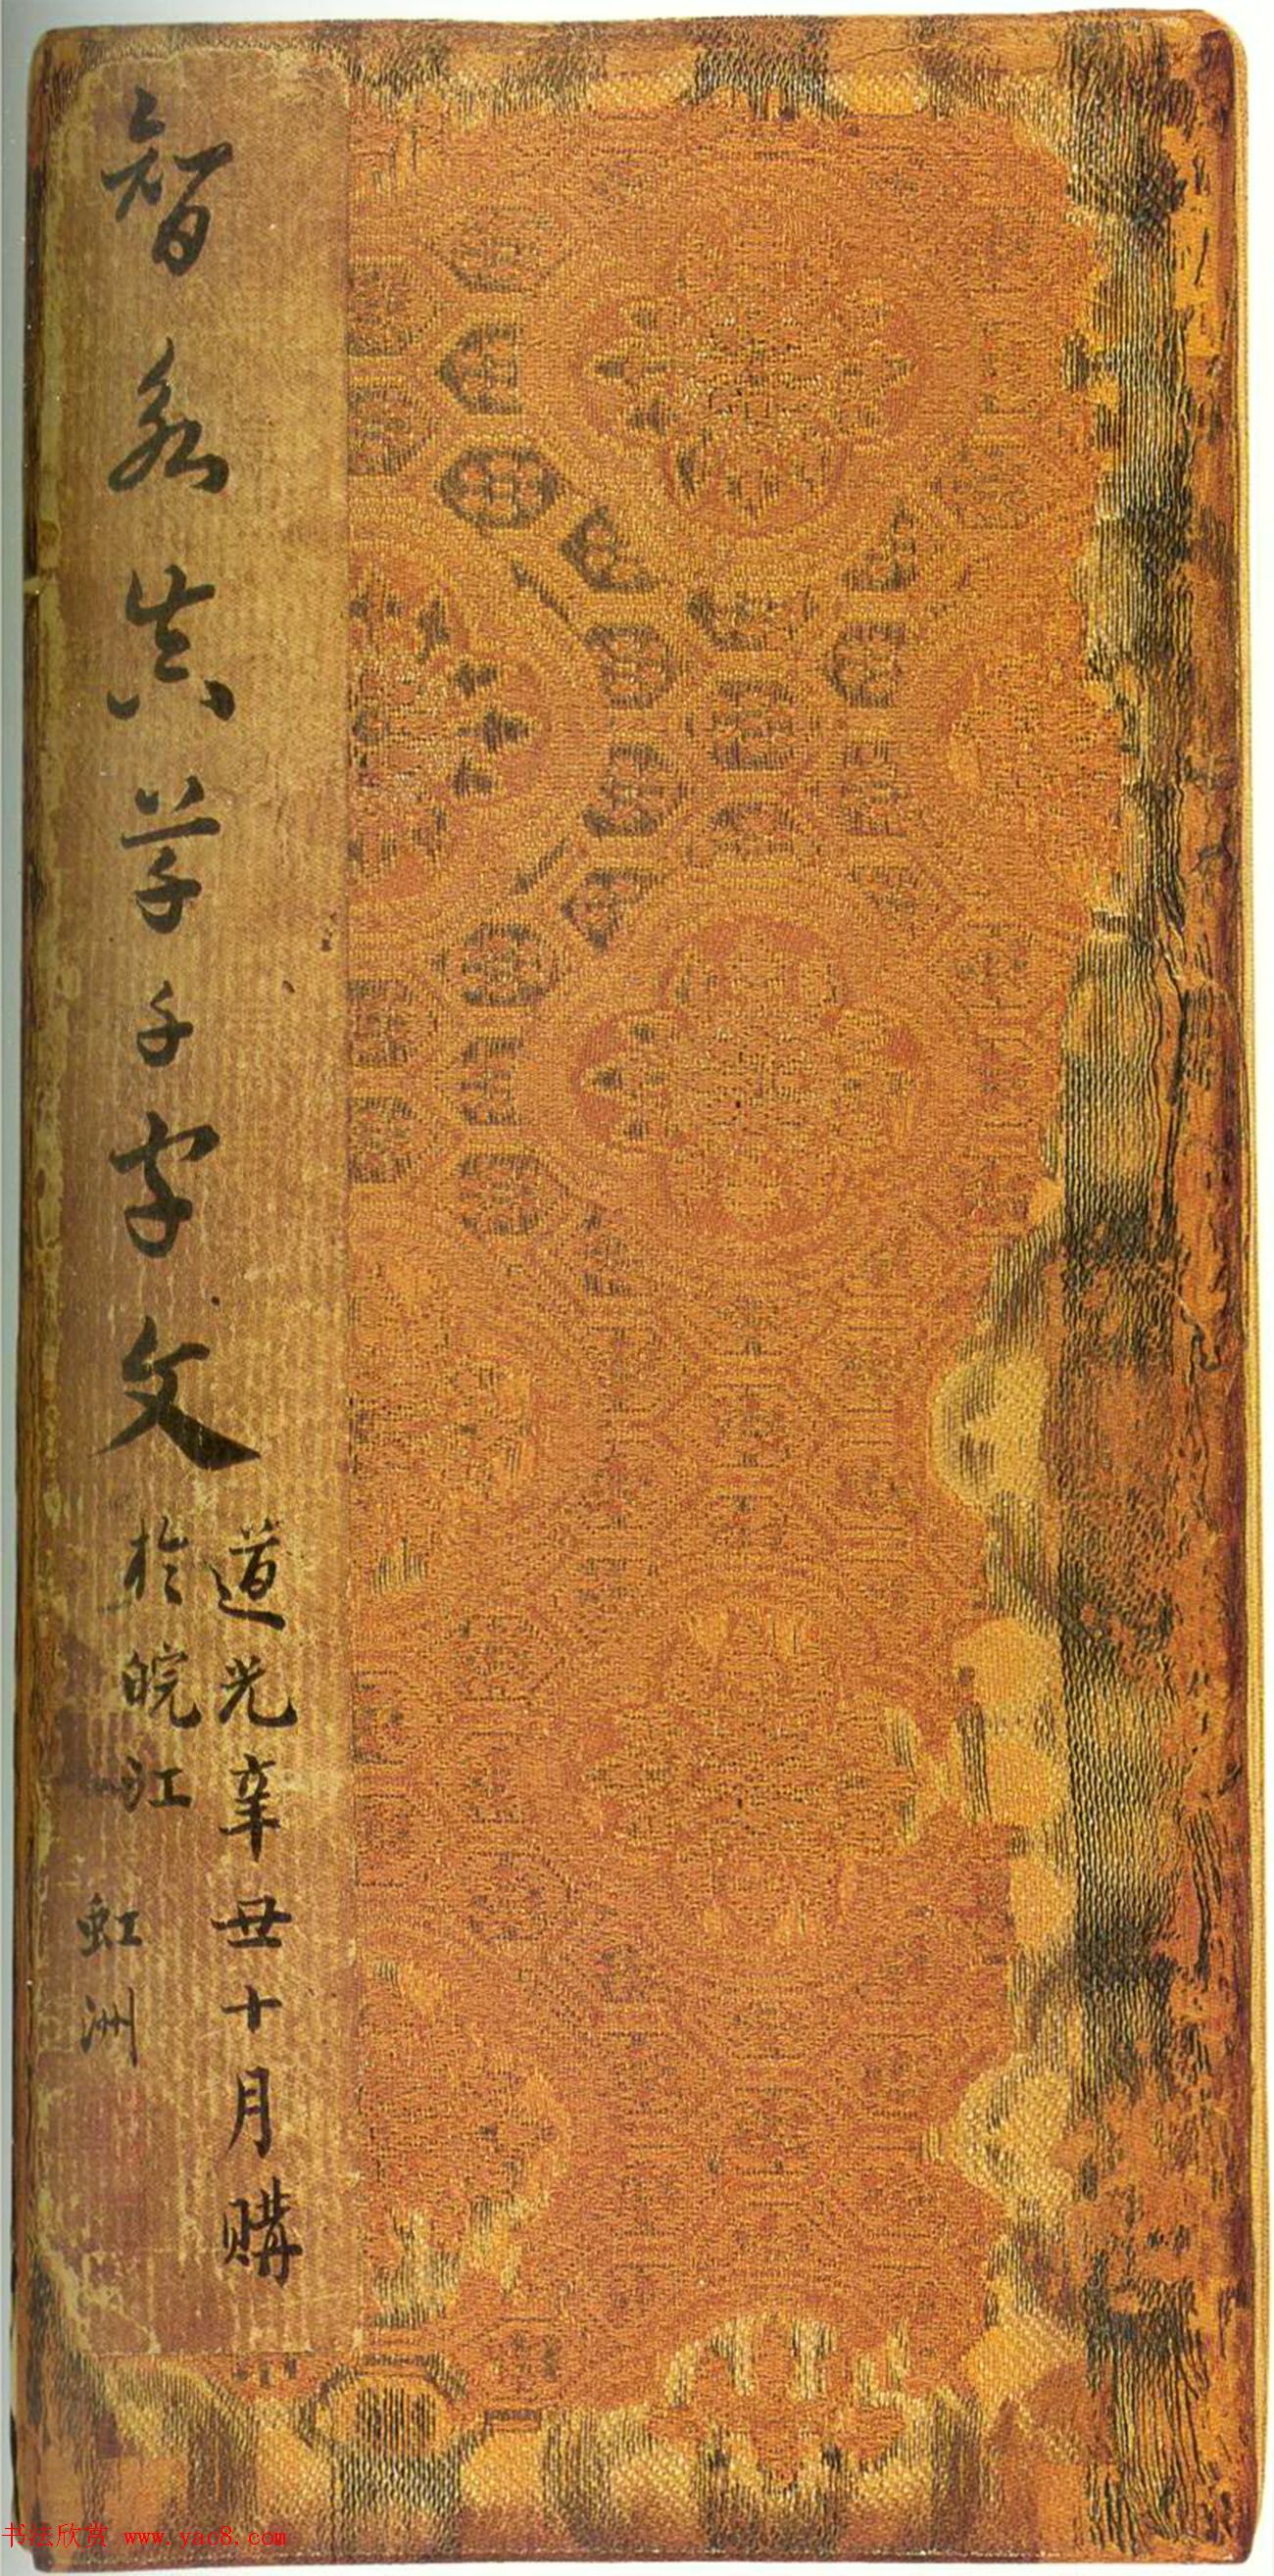 智永真草千字文
道光辛丑十月購
於皖江
虹洲
书法欣赏 www.yac8.com